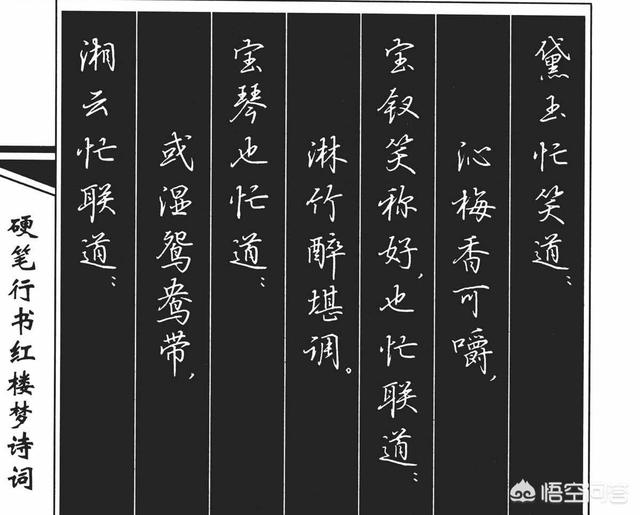 黛玉忙笑道：
沁梅香可嚼，
宝钗笑称好，也忙联道：
淋竹醉堪调。
宝琴也忙道：
或湿鸳鸯带，
湘云忙联道：
硬笔行书红楼梦诗词
悟空问答